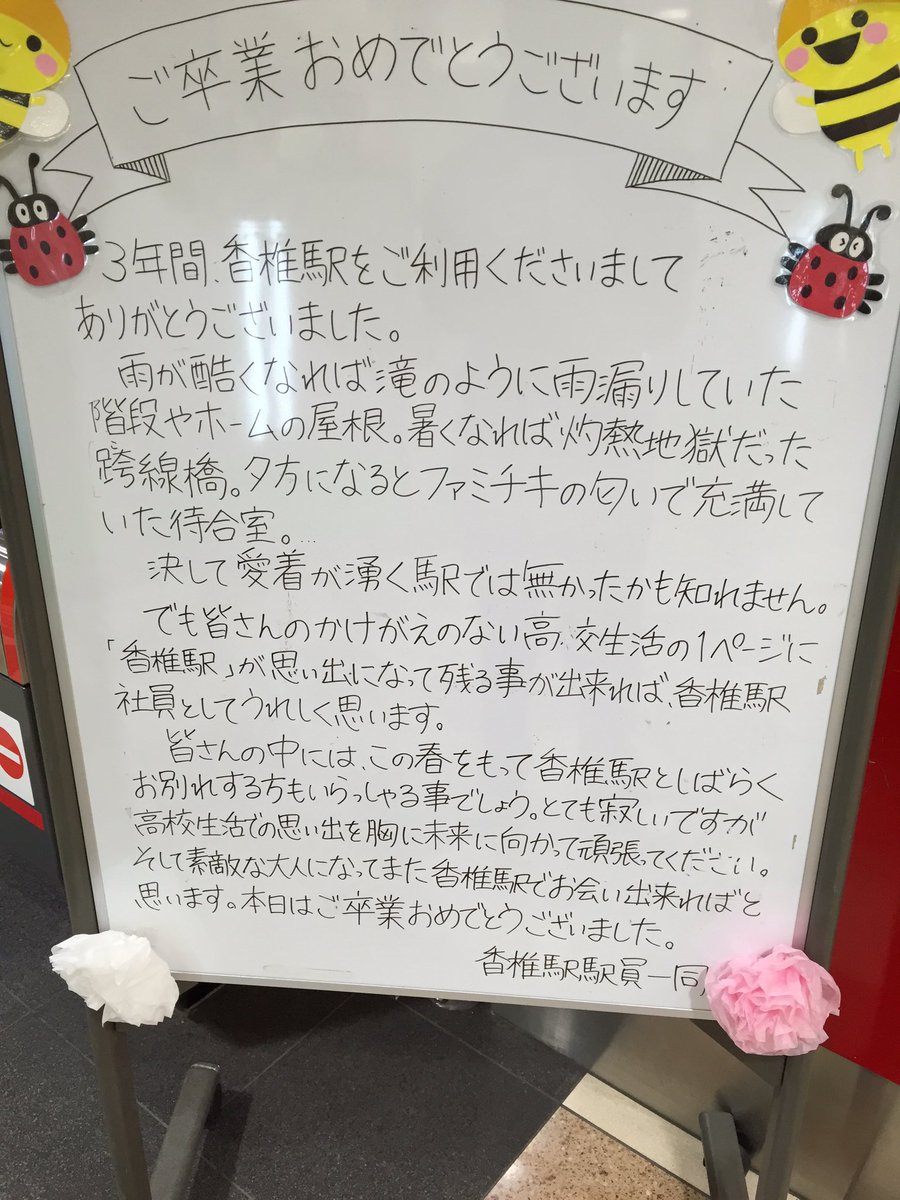 ご卒業おめでとうございます
3年間、香椎駅をご利用くださいまして
ありがとうございました。
雨が酷くなれば滝のように雨漏りしていた
階段やホームの屋根。暑くなれば灼熱地獄だった
跨線橋。夕方になるとファミチキの匂いで充満して
いた待合室。…
決して愛着が湧く駅では無かったかも知れません。
でも皆さんのかけがえのない高校生活の1ページに
「香椎駅」が思い出になって残る事が出来れば、香椎駅
社員としてうれしく思います。
皆さんの中には、この春をもって香椎駅としばらく
お別れする方もいらっしゃる事でしょう。とても寂しいですが
高校生活での思い出を胸に未来に向かって頑張ってください。
そして素敵な大人になってまた香椎駅でお会い出来ればと
思います。本日はご卒業おめでとうございました。
香椎駅駅員一同